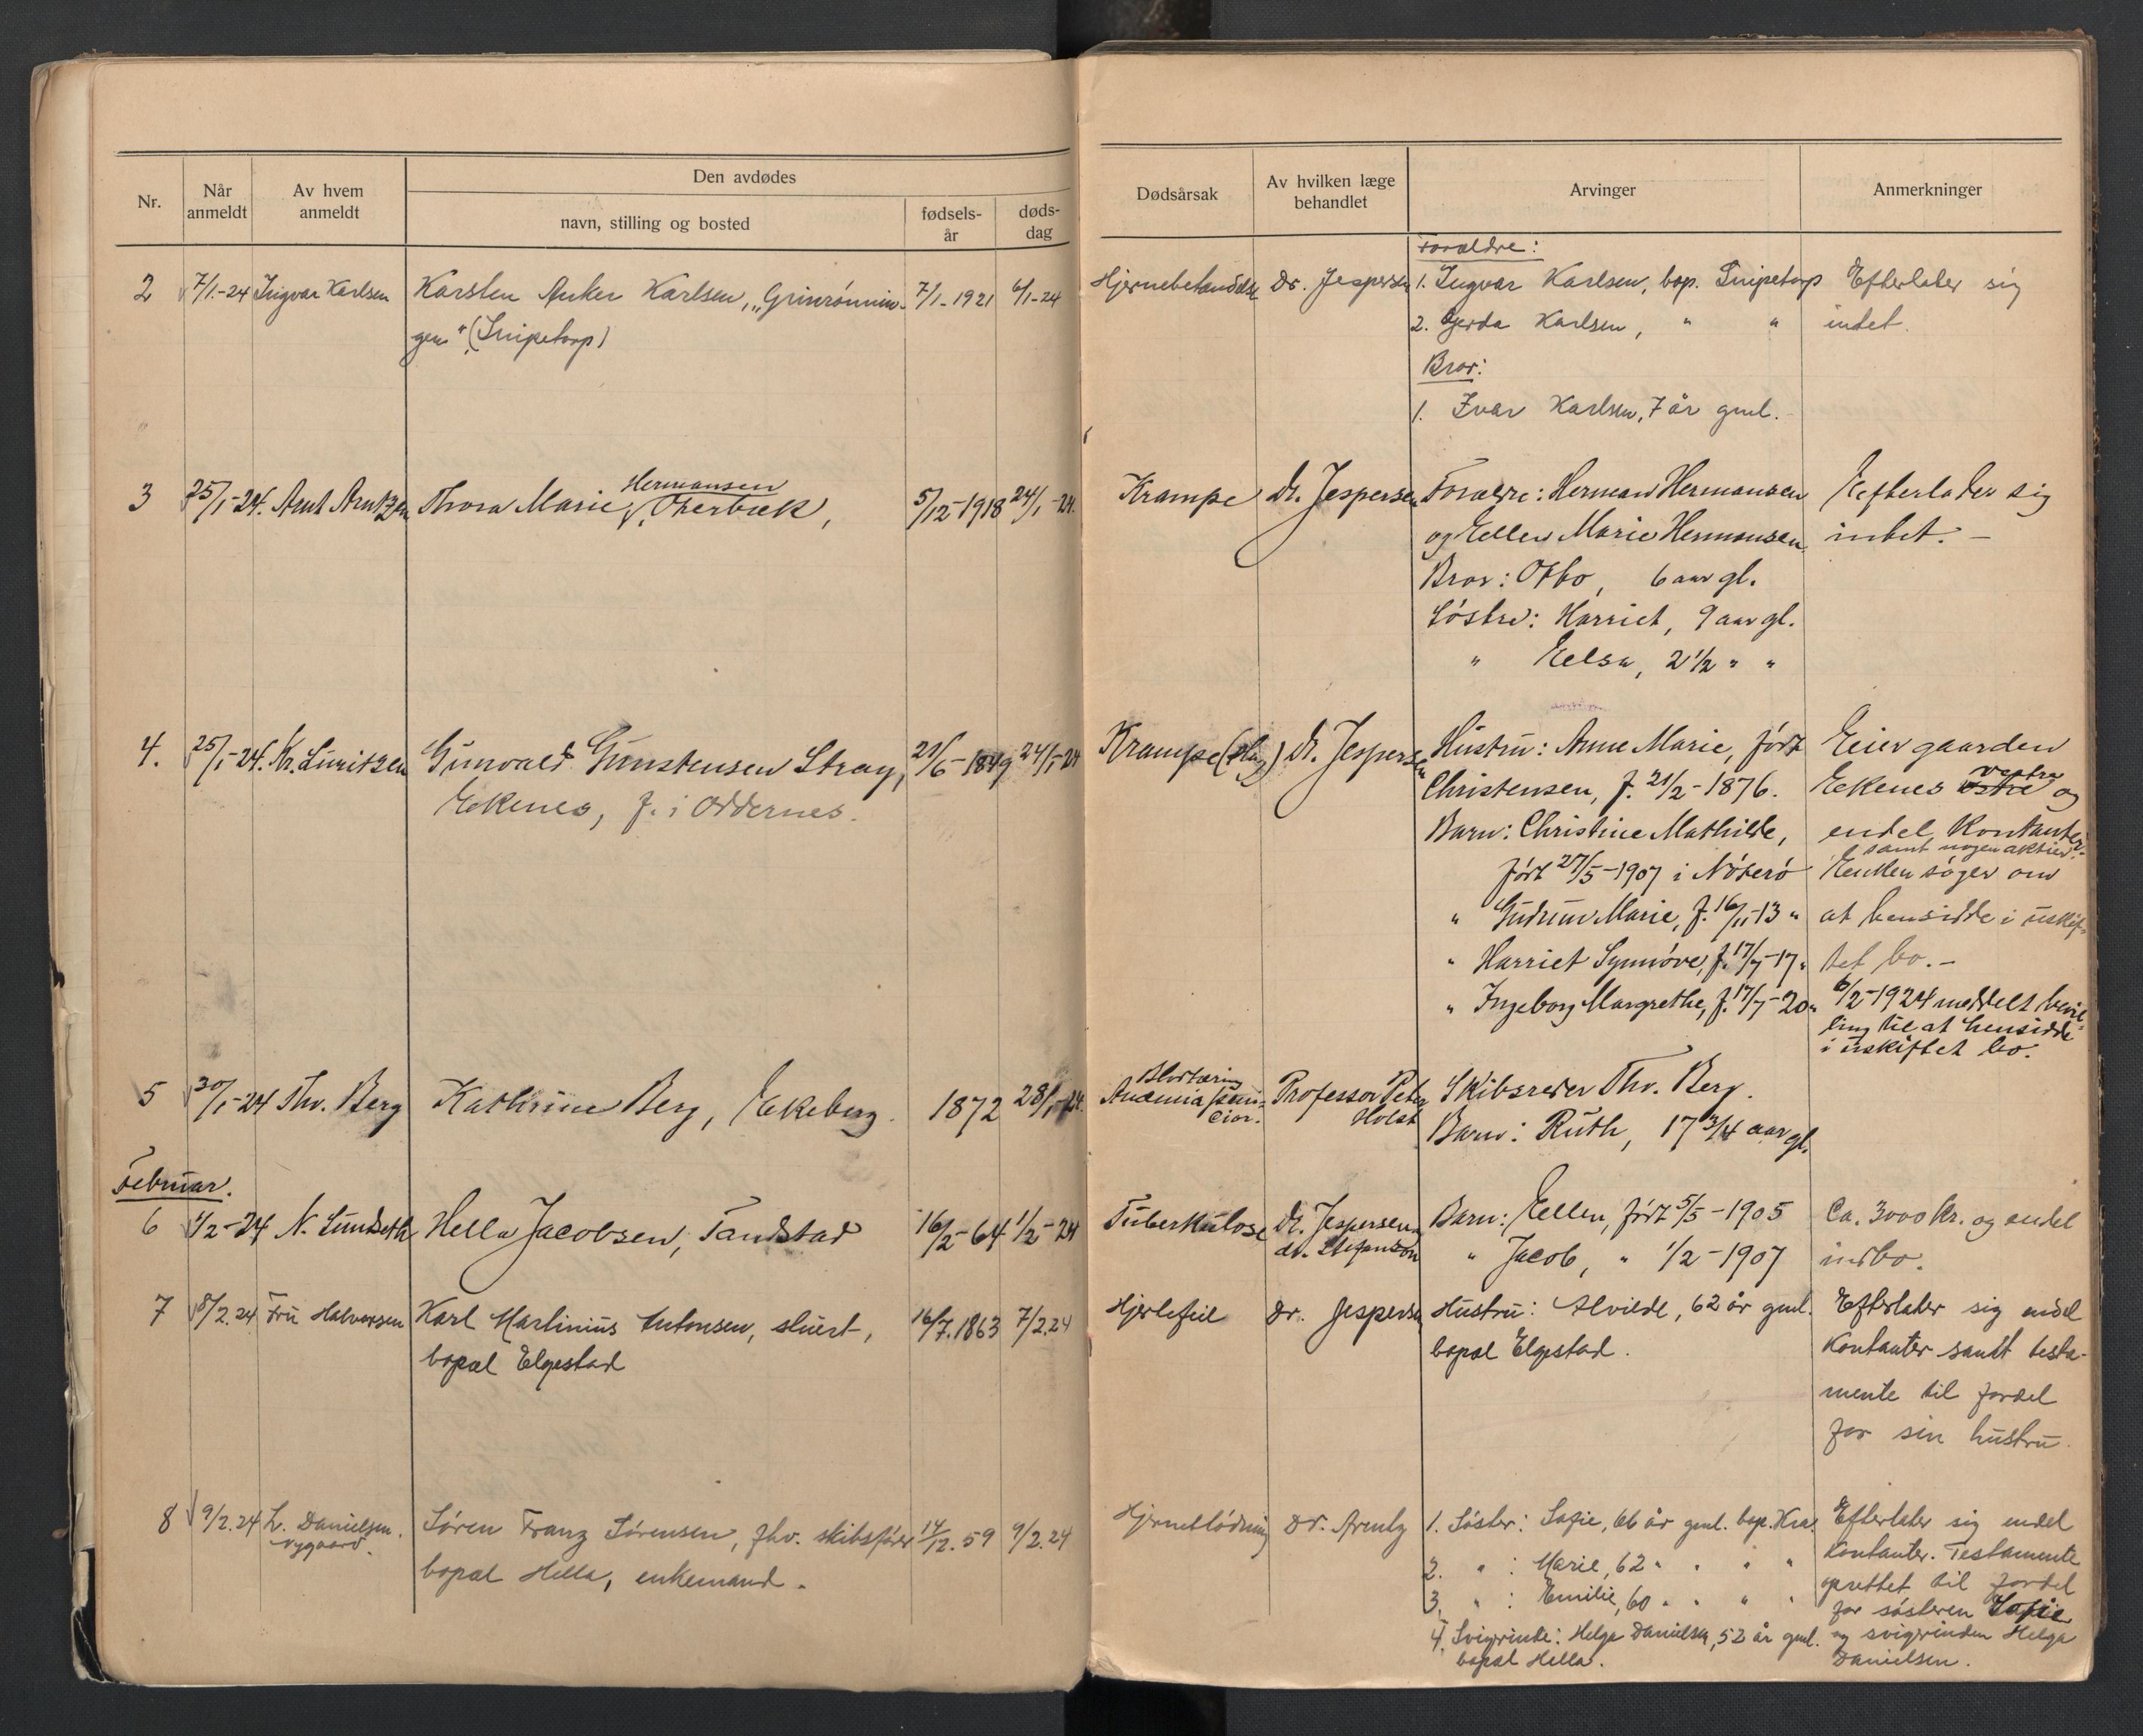 Nr.
Når anmeldt
Av hvem anmeldt
Den avdødes
navn, stilling og bosted
fødsels-år
døds-dag
Dødsårsak
Av hvilken læge behandlet
Arvinger
Anmerkninger
2 7/1-24 Ingvar Karlsen Karsten Anker Karlsen, „Grinrønnin- 7/1-1921 6/1-24
gen" (Snipetorp)
Hjernebetændelse Dr. Jespersen
Forældre:
1. Ingvar Karlsen, bop. Snipetorp
2. Gerda Karlsen, " "
Bror:
1. Ivar Karlsen, 7 år gml.
Efterlater sig
intet.
3 25/1-24. Arnt Arntzen Thora Marie Hermansen, Oterbæk, 5/12-1918 24/1-24.
Krampe Dr. Jespersen
Foræddre: Herman Hermansen
og Ellen Marie Hermansen
Bror: Otto, 6 aar gl.
Søstre: Harriet, 9 aar gl.
" Elsa, 2 1/2 " "
Efterlader sig
intet. –
4. 25/1-24. Kr. Lauritzen Gunvald Gunstensen Stray, 21/6-1849 24/1-24
Ekenes, f. i Oddernes.
Krampe (slag) Dr. Jespersen
Hustru: Anne Marie, født
Christensen, f. 21/2-1876.
Barn: Christine Mathilde,
født 27/5-1907 i Nøterø
" Gudrun Marie, f. 16/11-13 "
" Harriet Synnøve, f. 17/7-17 "
" Ingeborg Margrethe, f. 17/7-20 "
Eier gaarden
Ekenes vestre og
endel kontanter
samt nogen aktier.
Enken søger om
at hensidde i uskif-
tet bo. –
6/2-1924 meddelt bevil-
ling til at hensidde
i uskiftet bo.
5 30/1-24 Thv. Berg Kathrine Berg, Ekeberg. 1872 28/1-24.
Blodtæring
Anæmia perni-
cior.
Professor Peter
Holst
Skibsreder Thv. Berg.
Barn: Ruth, 17 3/4 aar gl.
Februar.
6 1/2-24 N. Sundseth Hella Jacobsen, Tandstad 16/2-64 1/2-24
Tuberkulose Dr. Jespersen
dr. Stefanson
Barn: Ellen, født 5/5-1905
" Jacob, " 1/2-1907
Ca. 3000 kr. og endel
indbo.
7 8/2.24 Fru Halvorsen Karl Martinius Antonsen, stuert, 16/7.1863 7/2.24
bopæl Elgestad
Hjertefeil Dr. Jespersen
Hustru: Alvilde, 62 år gml.
bopæl Elgestad.
Efterlater sig endel
kontanter samt testa-
mente til fordel
for sin hustru.
8 9/2.24 L. Danielsen.
Nygaard.
Søren Franz Sørensen, fhv. skibsfører 14/12.59 9/2.24
bopæl Hella, enkemand.
Hjerneblødning Dr. Arentz
1. Søster: Sofie, 66 år gml. bop. Kra.
2. " : Marie, 62 " " " "
3. " : Emilie, 60 " " " "
4. Svigerinde: Helga Danielsen, 52 år gml.
bopæl Hella.
Efterlater sig endel
kontanter. Testamente
oprettet til fordel
for søsteren Sofie
og svigerinden Helga
Danielsen.